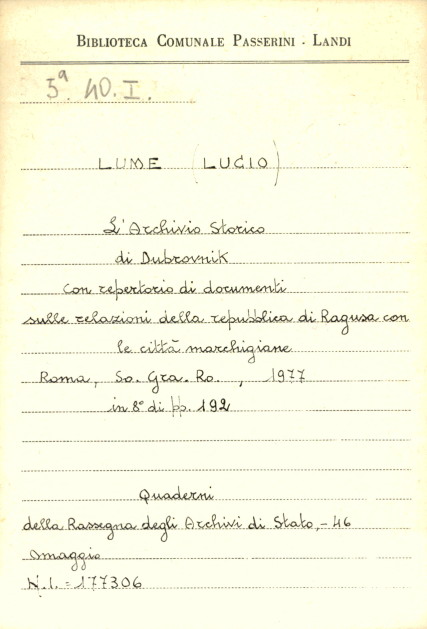 BIBLIOTECA COMUNALE PASSERINI - LANDI
5ª. 40. I.
LUME (LUCIO)
L'Archivio Storico
di Dubrovnik
con repertorio di documenti
sulle relazioni della repubblica di Ragusa con
le città marchigiane
Roma, So. Gra. Ro., 1977
in 8° di pp. 192
Quaderni
della Rassegna degli Archivi di Stato, - 46
omaggio
N.I. = 177306